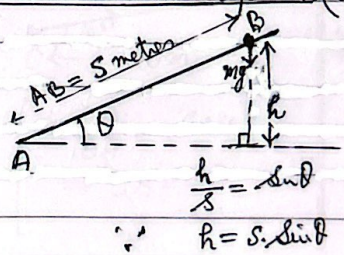 AB = S metres
B
mg
h
θ
A
h/s = sinθ
∵ h = s. sinθ